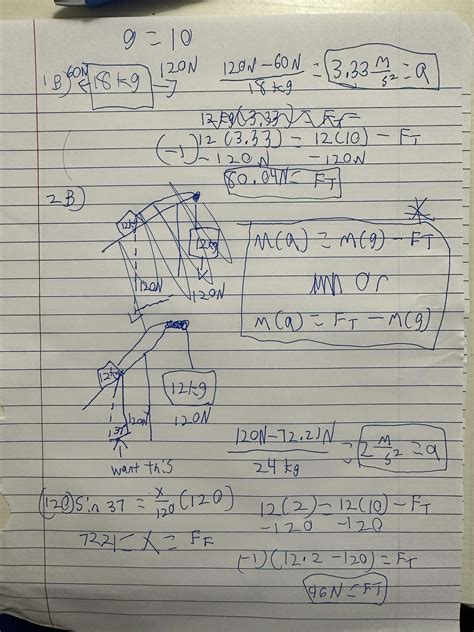 g = 10
1B) 60N 18kg 120N
120N-60N / 18kg = 3.33 m/s² = a
12kg(3.33) = FT =
(-1) 12(3.33) = 12(10) - FT
-120N -120N
80.04N = FT
2B)
12kg 12kg
120N 120N
M(a) = M(g) - FT
or
M(a) = FT - M(g)
12kg 12kg
120N 120N
37
want this
120N-72.21N / 24kg = 2 m/s² = a
(120) Sin 37 = x/120 (120)
72.21 = X = FF
12(2) = 12(10) - FT
-120 -120
(-1)(12·2 - 120) = FT
96N = FT